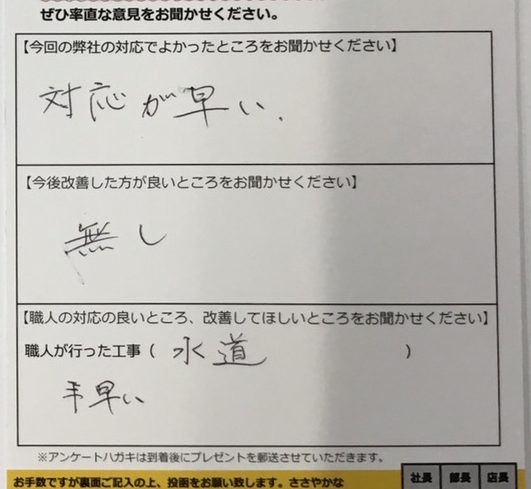 ぜひ率直な意見をお聞かせください。
【今回の弊社の対応でよかったところをお聞かせください】
対応が早い.
【今後改善した方が良いところをお聞かせください】
無し
【職人の対応の良いところ、改善してほしいところをお聞かせください】
職人が行った工事（ 水道 ）
手早い
※アンケートハガキは到着後にプレゼントを郵送させていただきます。
お手数ですが裏面ご記入の上、投函をお願い致します。ささやかな
社長 部長 店長